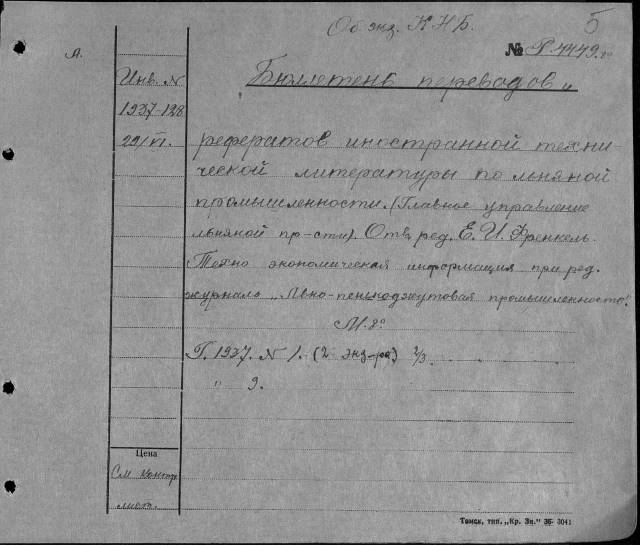 Об. экз. К Н Б.
5
№ Р. 4449. 8°
А.
Инв. N
1937-128
29/VI.
Бюллетень переводов и
рефератов иностранной техни-
ческой литературы по льняной
промышленности. (Главное управление
льняной пр-сти). Отв. ред. Е. И. Френкель.
Техно экономическая информация при ред.
журнала "Льно-пенькоджутовая промышленность".
М. 8°
Г. 1937. N 1. (2 экз-ра) 2/3.
" 9.
Цена
См. контр.
лист.
Томск, тип. „Кр. Зн." 36- 3041